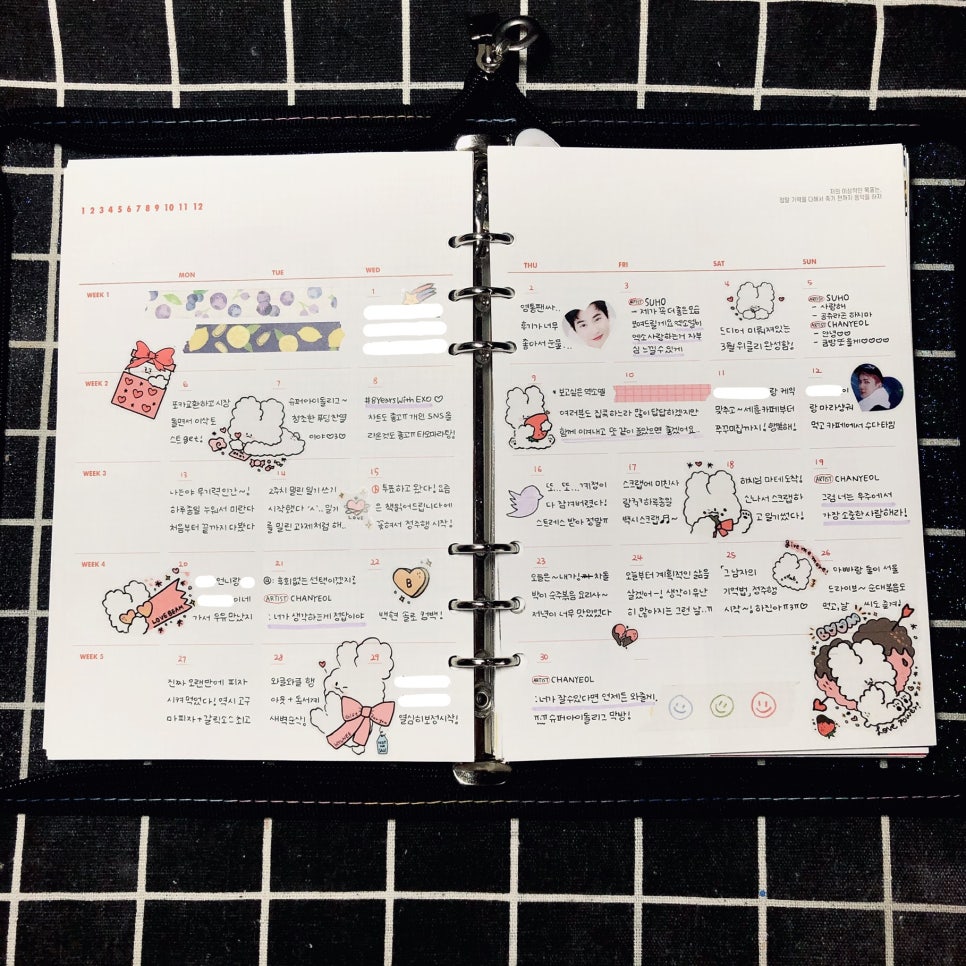 1 2 3 4 5 6 7 8 9 10 11 12
저의 이상적인 목표는,
정말 기력을 다해서 죽기 전까지 음악을 하자
MON TUE WED
THU FRI SAT SUN
WEEK 1
1
2
영통팬싸..
후기가 너무
좋아서 눈물...
3
ARTIST SUHO
- 제가 꼭 더 좋은 모습
보여드릴게요 엑소엘이
엑소 사랑하는거 자부
심 느낄 수 있게
4
드디어 미뤄져있는
3월 위클리 완성함!
5
ARTIST SUHO
- 사랑해
- 공유하려곤 하지마
ARTIST CHANYEOL
- 안녕♡♡
- 금방 또 올게♡♡♡♡
WEEK 2
6
포카교환하고 시장
돌면서 이삭토
스트 get!
7
슈퍼아이돌리그~
청초한 푸딩 찬열
이야♡3♡
8
#8Years With EXO ♡
차트도 좋고ㅠ 개인 SNS을
9
* 보고싶은 엑소엘
10
여러분도 집콕하느라 많이 답답하겠지만
함께 이겨내고 또 같이 놀았으면 좋겠어요..
11
랑 케익
맞추고~ 세븐카페부터
쭈꾸미집까지! 행복해!
12
이
랑 마라샹궈
먹고 카페에서 수다타임
WEEK 3
13
나는야 무기력인간~!
하루종일 누워서 미란다
처음부터 끝까지 다 봤다
14
2주치 밀린 일기 쓰기
시작했다 ^^.. 일기
를 밀린 과제처럼 하..
LOVE
15
투표하고 왔다! 요즘
은 책읽어드립니다에
꽂혀서 정주행 시작!
16
또...또...?키링이
다 잠겨버렸다!
스트레스 받아 정말ㅠ
17
스크랩에 미친사
람ㅋ? 하루종일
백시스크랩♬~
18
허찌님 마테 도착!
신나서 스크랩하
고 일기썼다!
19
ARTIST CHANYEOL
그럼 너는 우주에서
가장 소중한 사람해라!
WEEK 4
LOVE BEAM
20
언니랑
이네
가서 우유 만났지
21
: 후회없는 선택이겠지?
ARTIST CHANYEOL
: 너가 생각하는게 정답이야
22
B
백현 솔로 컴백!
23
오늘은~ 내가! 차돌
박이 숙주볶음 요리사~
저녁이 너무 맛있었다
24
오늘부터 계획적인 삶을
살겠어~! 생각이 유난
히 많아지는 그런 날..ㅠ
25
「그 남자의
기억법」 정주행
시작~! 하진아ㅠ3ㅠ♡
26
아빠랑 둘이 서울
드라이브~ 순대볶음도
먹고, 날씨도 즐겨!
WEEK 5
27
진짜 오랜만에 피자
시켜먹었다! 역시 고구
마피자+갈릭소스 최고
28
와글와글 행
아웃+독서께
새벽순삭!
29
열심히 보정시작!
30
ARTIST CHANYEOL
: 너가 잘 수 있다면 언제든 와줄게
ㅠㅠ 슈퍼아이돌리그 막방!
BOOM